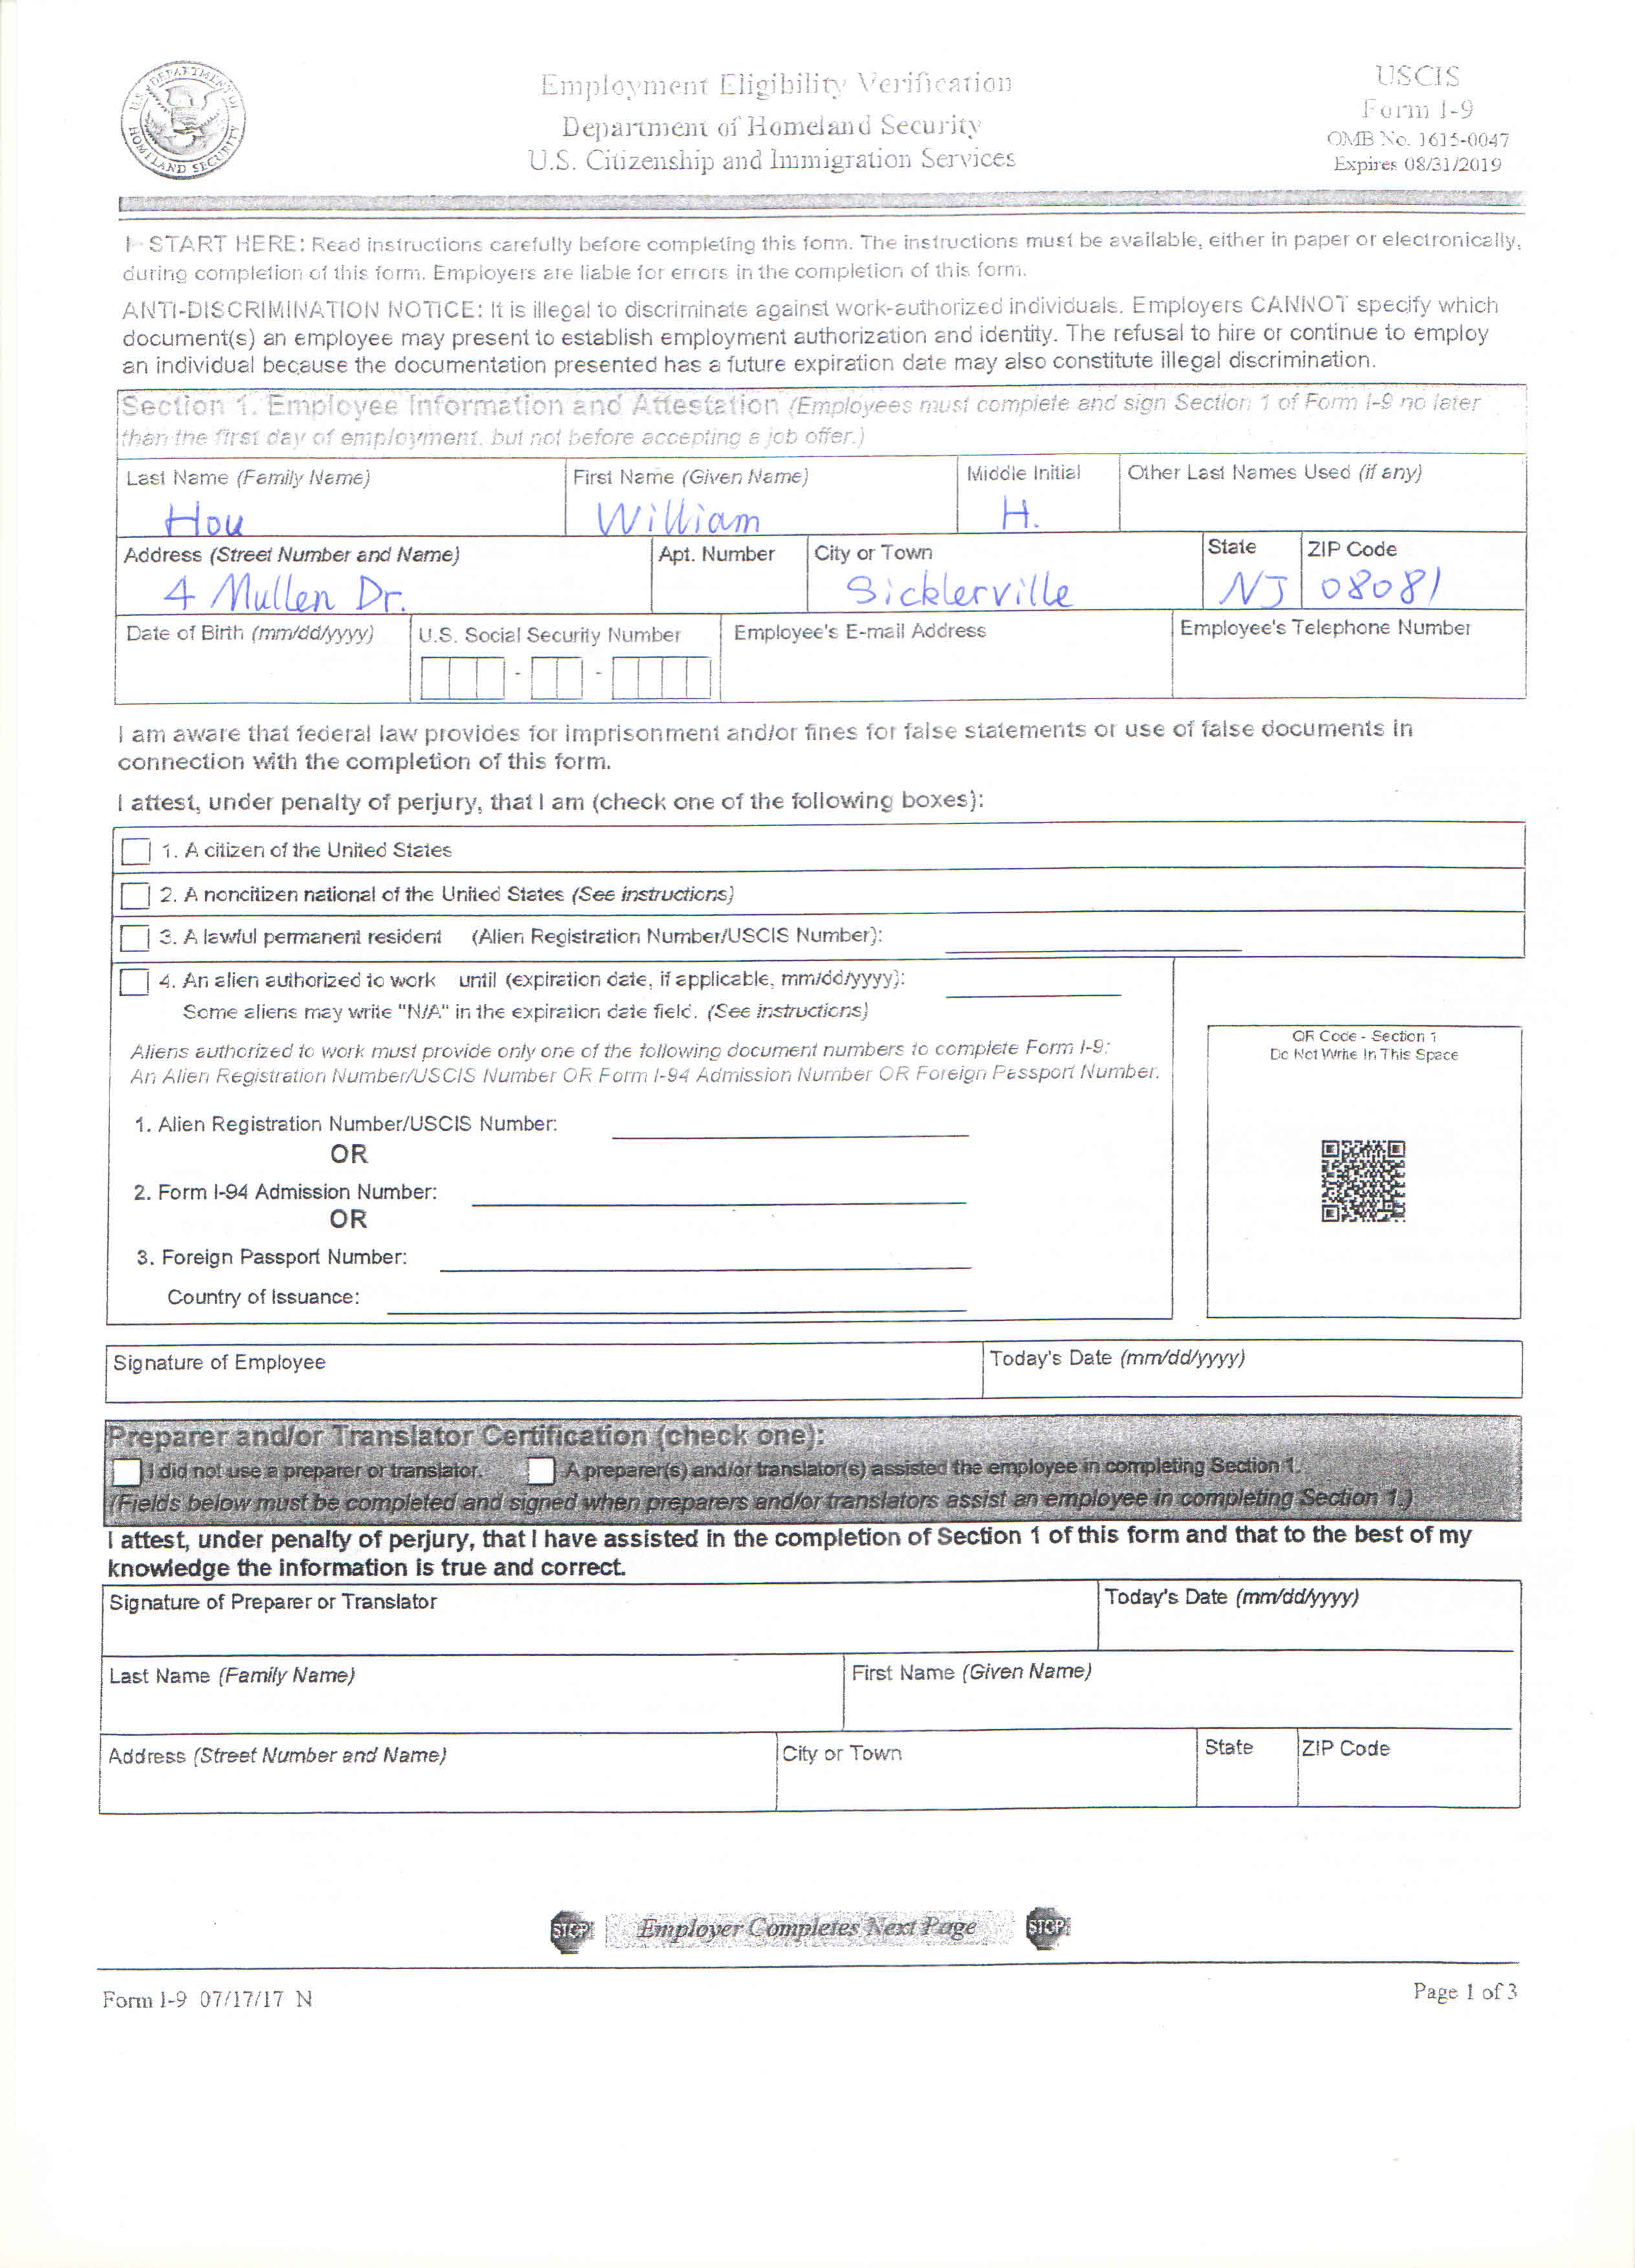 U.S. DEPARTMENT OF HOMELAND SECURITY
Employment Eligibility Verification
Department of Homeland Security
U.S. Citizenship and Immigration Services
USCIS
Form I-9
OMB No. 1615-0047
Expires 08/31/2019
START HERE: Read instructions carefully before completing this form. The instructions must be available, either in paper or electronically,
during completion of this form. Employers are liable for errors in the completion of this form.
ANTI-DISCRIMINATION NOTICE: It is illegal to discriminate against work-authorized individuals. Employers CANNOT specify which
document(s) an employee may present to establish employment authorization and identity. The refusal to hire or continue to employ
an individual because the documentation presented has a future expiration date may also constitute illegal discrimination.
Section 1. Employee Information and Attestation (Employees must complete and sign Section 1 of Form I-9 no later
than the first day of employment, but not before accepting a job offer.)
Last Name (Family Name) First Name (Given Name) Middle Initial Other Last Names Used (if any)
Hou William H.
Address (Street Number and Name) Apt. Number City or Town State ZIP Code
4 Mullen Dr. Sicklerville NJ 08081
Date of Birth (mm/dd/yyyy) U.S. Social Security Number Employee's E-mail Address Employee's Telephone Number
- -
I am aware that federal law provides for imprisonment and/or fines for false statements or use of false documents in
connection with the completion of this form.
I attest, under penalty of perjury, that I am (check one of the following boxes):
1. A citizen of the United States
2. A noncitizen national of the United States (See instructions)
3. A lawful permanent resident (Alien Registration Number/USCIS Number):
4. An alien authorized to work until (expiration date, if applicable, mm/dd/yyyy):
Some aliens may write "N/A" in the expiration date field. (See instructions)
Aliens authorized to work must provide only one of the following document numbers to complete Form I-9:
An Alien Registration Number/USCIS Number OR Form I-94 Admission Number OR Foreign Passport Number.
1. Alien Registration Number/USCIS Number:
OR
2. Form I-94 Admission Number:
OR
3. Foreign Passport Number:
Country of Issuance:
QR Code - Section 1
Do Not Write In This Space
Signature of Employee Today's Date (mm/dd/yyyy)
Preparer and/or Translator Certification (check one):
I did not use a preparer or translator. A preparer(s) and/or translator(s) assisted the employee in completing Section 1.
(Fields below must be completed and signed when preparers and/or translators assist an employee in completing Section 1.)
I attest, under penalty of perjury, that I have assisted in the completion of Section 1 of this form and that to the best of my
knowledge the information is true and correct.
Signature of Preparer or Translator Today's Date (mm/dd/yyyy)
Last Name (Family Name) First Name (Given Name)
Address (Street Number and Name) City or Town State ZIP Code
STOP Employer Completes Next Page STOP
Form I-9 07/17/17 N Page 1 of 3